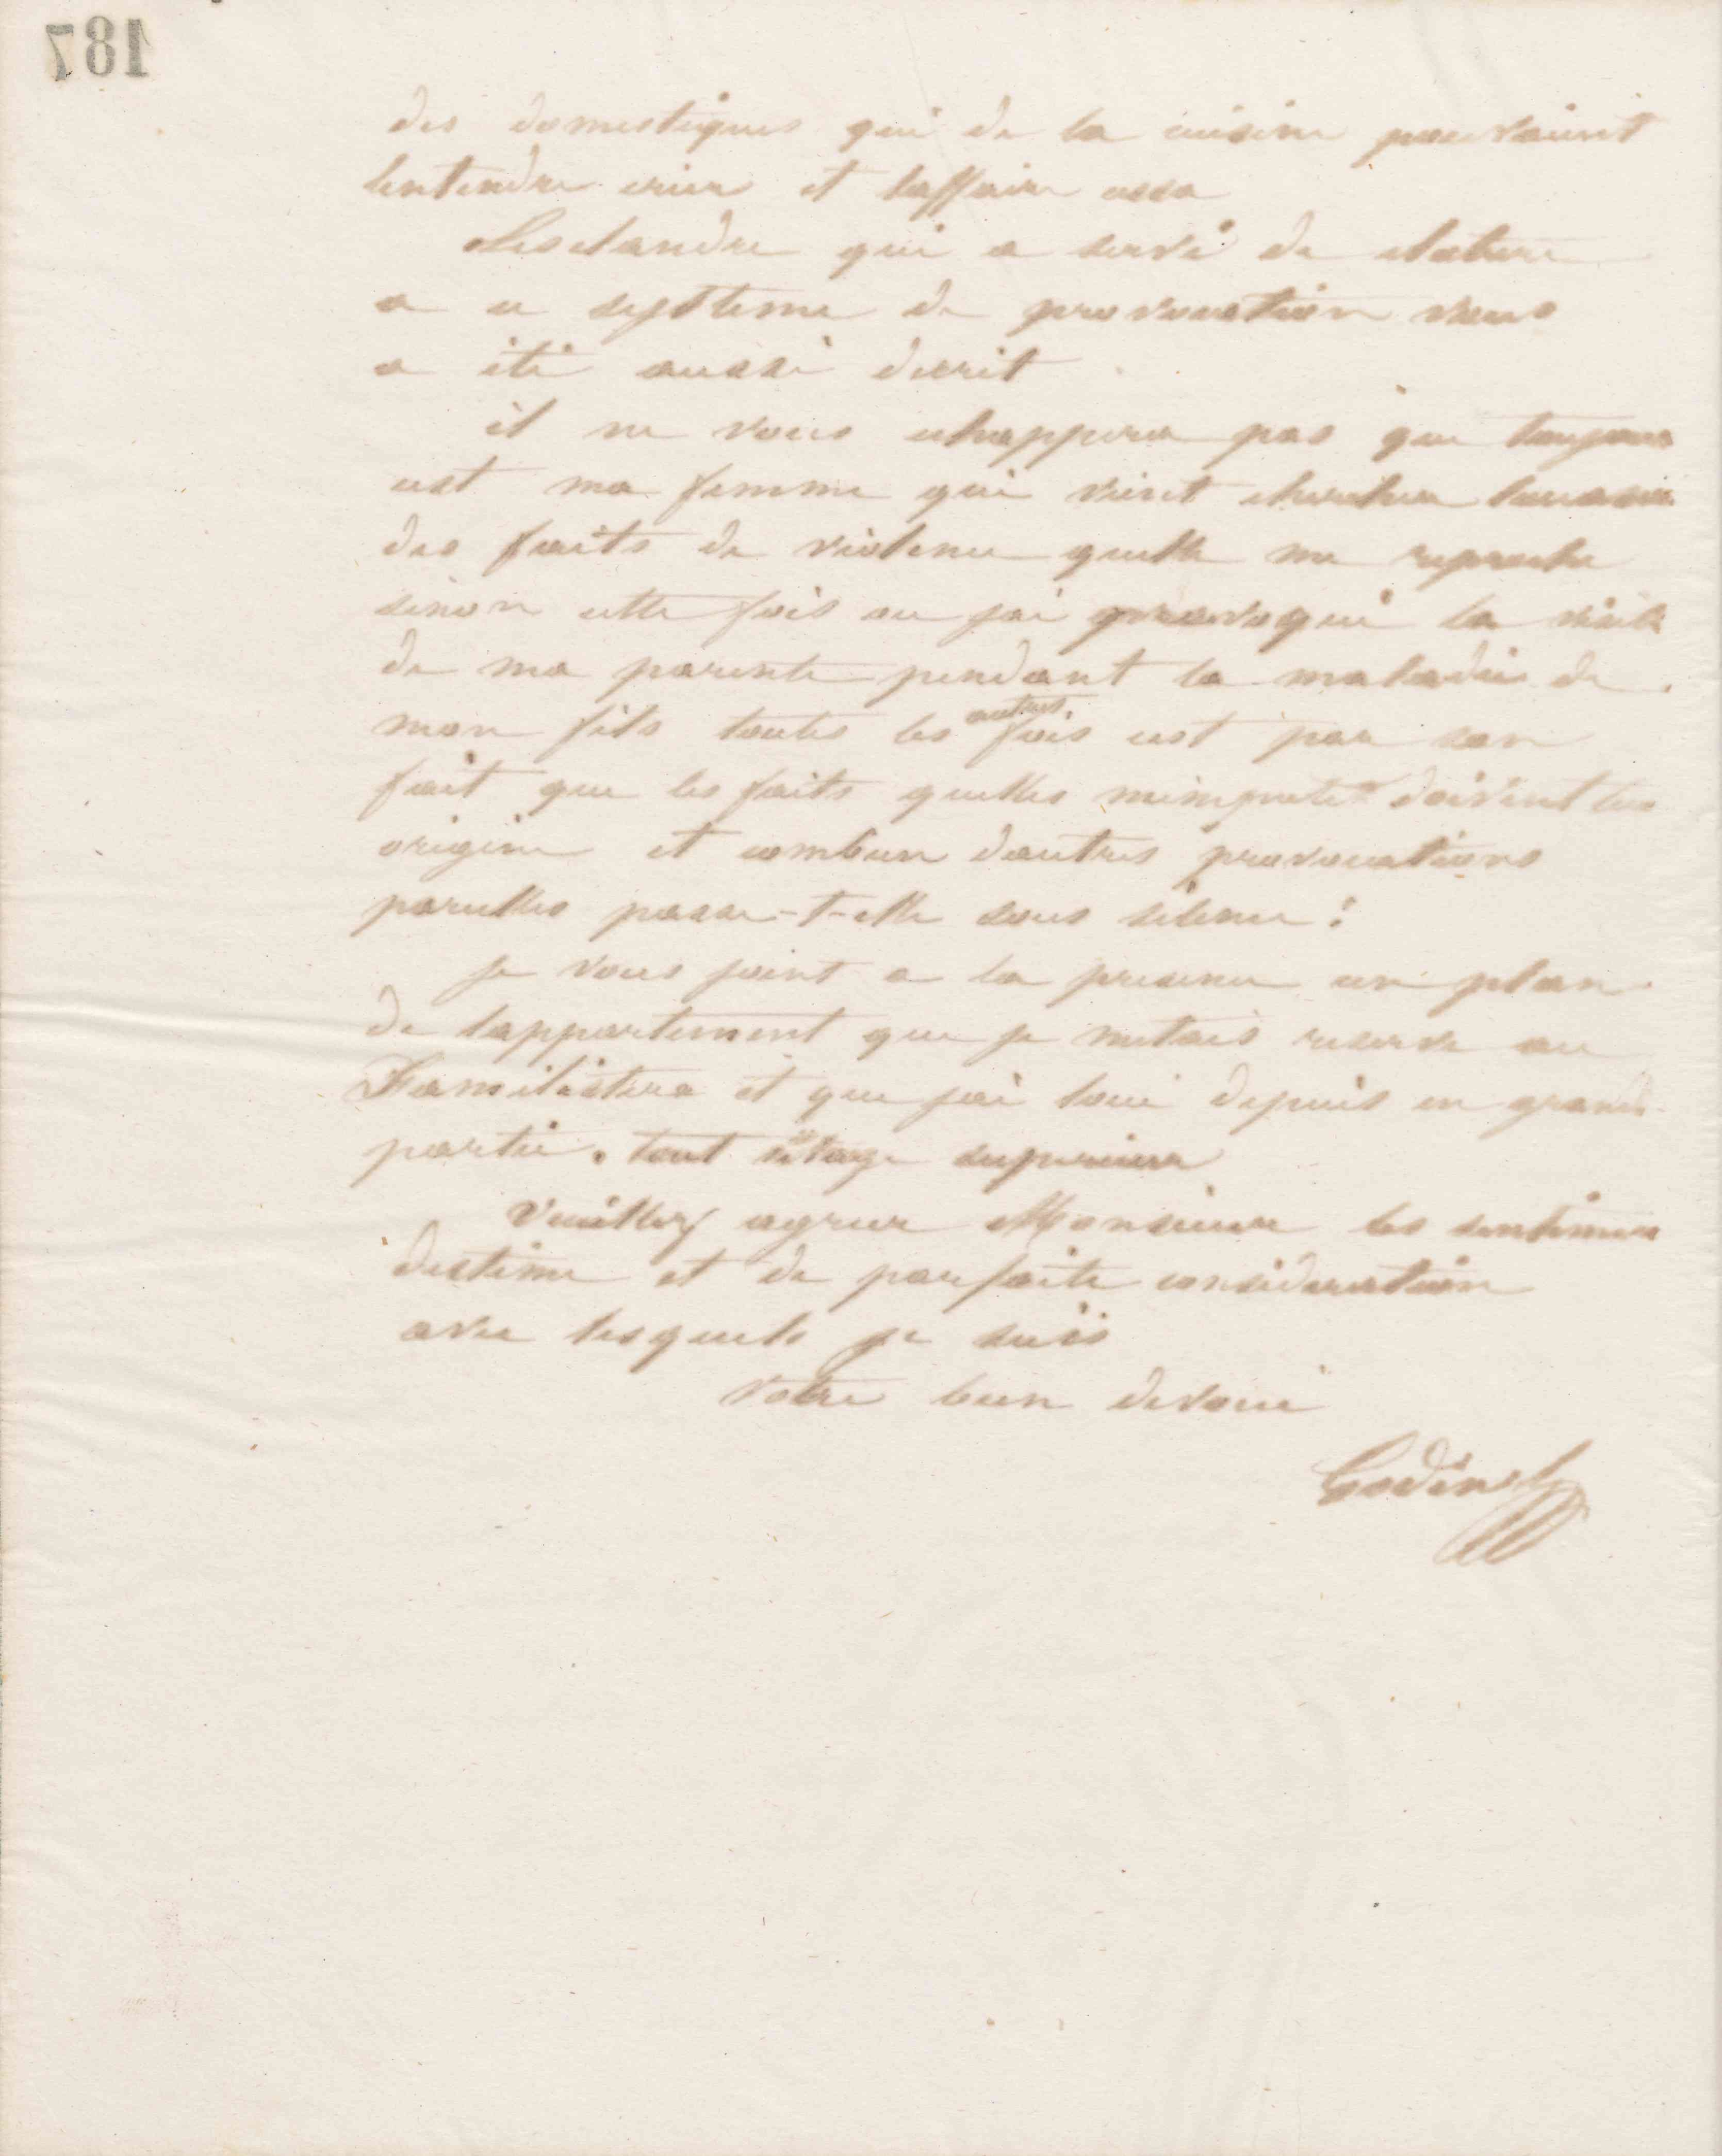 187
des domestiques qui de la cuisine pouvaient
lentendre crier et laffaire cessa
Lesclandre qui a servi de cloture
a ce systeme de provocation vous
a été aussi decrit
il ne vous echappera pas que toujours
cest ma femme qui vient chercher loccasion
des faits de violence quelle me reproche
sinon cette fois ou jai provoqué la visite
de ma parente pendant la maladie de
mon fils toutes les autres fois cest par son
fait que les faits quelles mimpute doivent leur
origine et combien dautres provocations
pareilles passe-t-elle sous silence !
Je vous joint a la presence un plan
de lappartement que je metais reservé au
Familistère et que jai loué depuis en grande
partie. tout letage superieur
Veuillez agreer Monsieur les sentiments
destime et de parfaite consideration
avec lesquels je suis
votre bien devoué
Godin